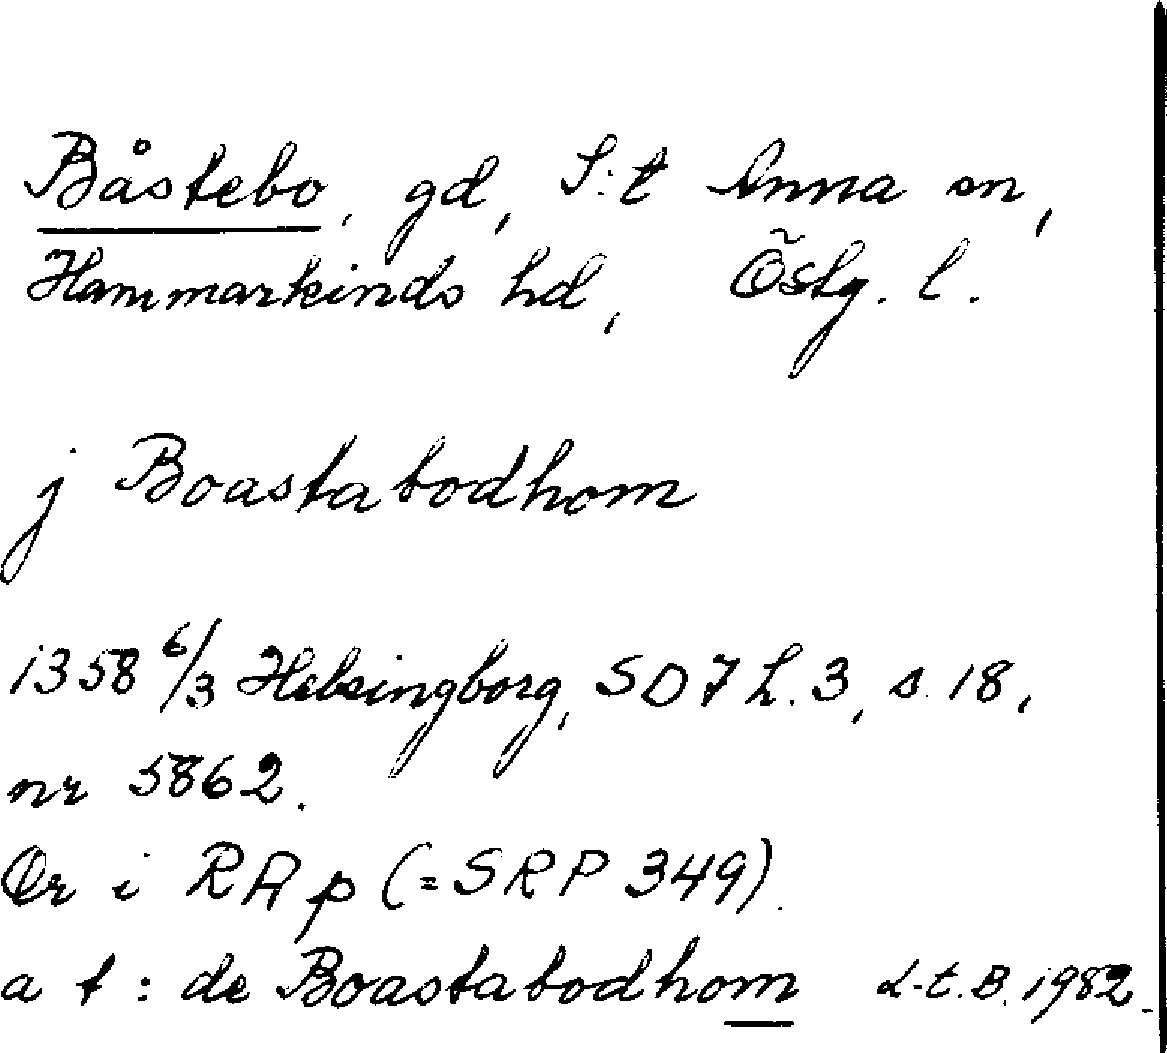 Båstebo, gd, S:t Anna sn,
Hammarkinds hd, Östg. l.
j Boastabodhom
1358 6/3 Helsingborg, SD 7 h. 3, s. 18,
nr 5862.
Or i RA p (= SRP 349).
a t : de Boastabodhom L-t. B. 1982.